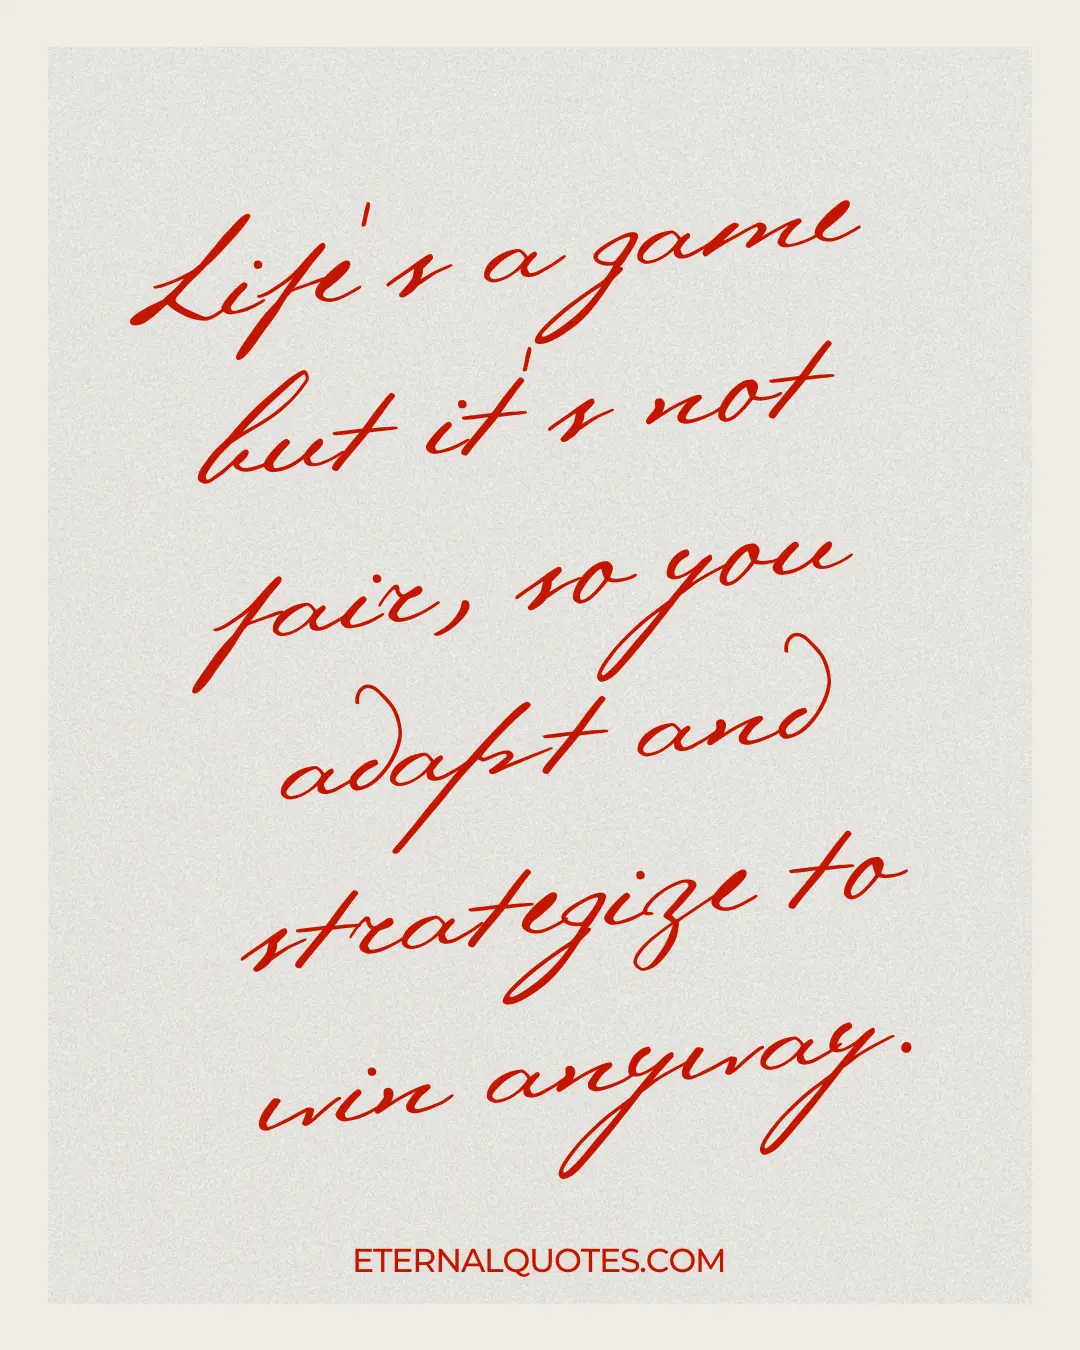 Life's a game
but it's not
fair, so you
adapt and
strategize to
win anyway.
ETERNALQUOTES.COM